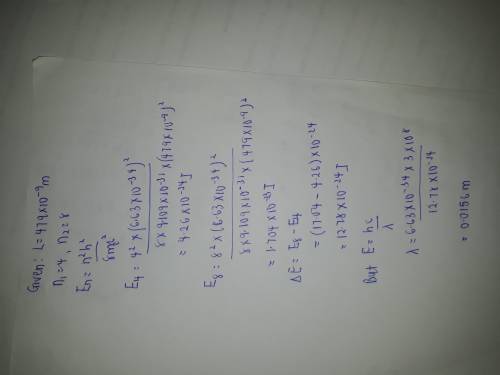 Given: L = 479 x 10⁻⁹m
n₁ = 4, n₂ = 8
En = n²h²
8mL²
E₄ = 4² x (6.63 x 10⁻³⁴)²
8 x 9.109 x 10⁻³¹ x (479 x 10⁻⁹)²
= 4.26 x 10⁻²⁴J
E₈ = 8² x (6.63 x 10⁻³⁴)²
8 x 9.109 x 10⁻³¹ x (479 x 10⁻⁹)²
= 1.704 x 10⁻²³J
ΔE = E₈ - E₄
= (17.04 - 4.26) x 10⁻²⁴
= 12.78 x 10⁻²⁴J
But E = hc
λ
λ = 6.63 x 10⁻³⁴ x 3 x 10⁸
12.78 x 10⁻²⁴
= 0.0156 m